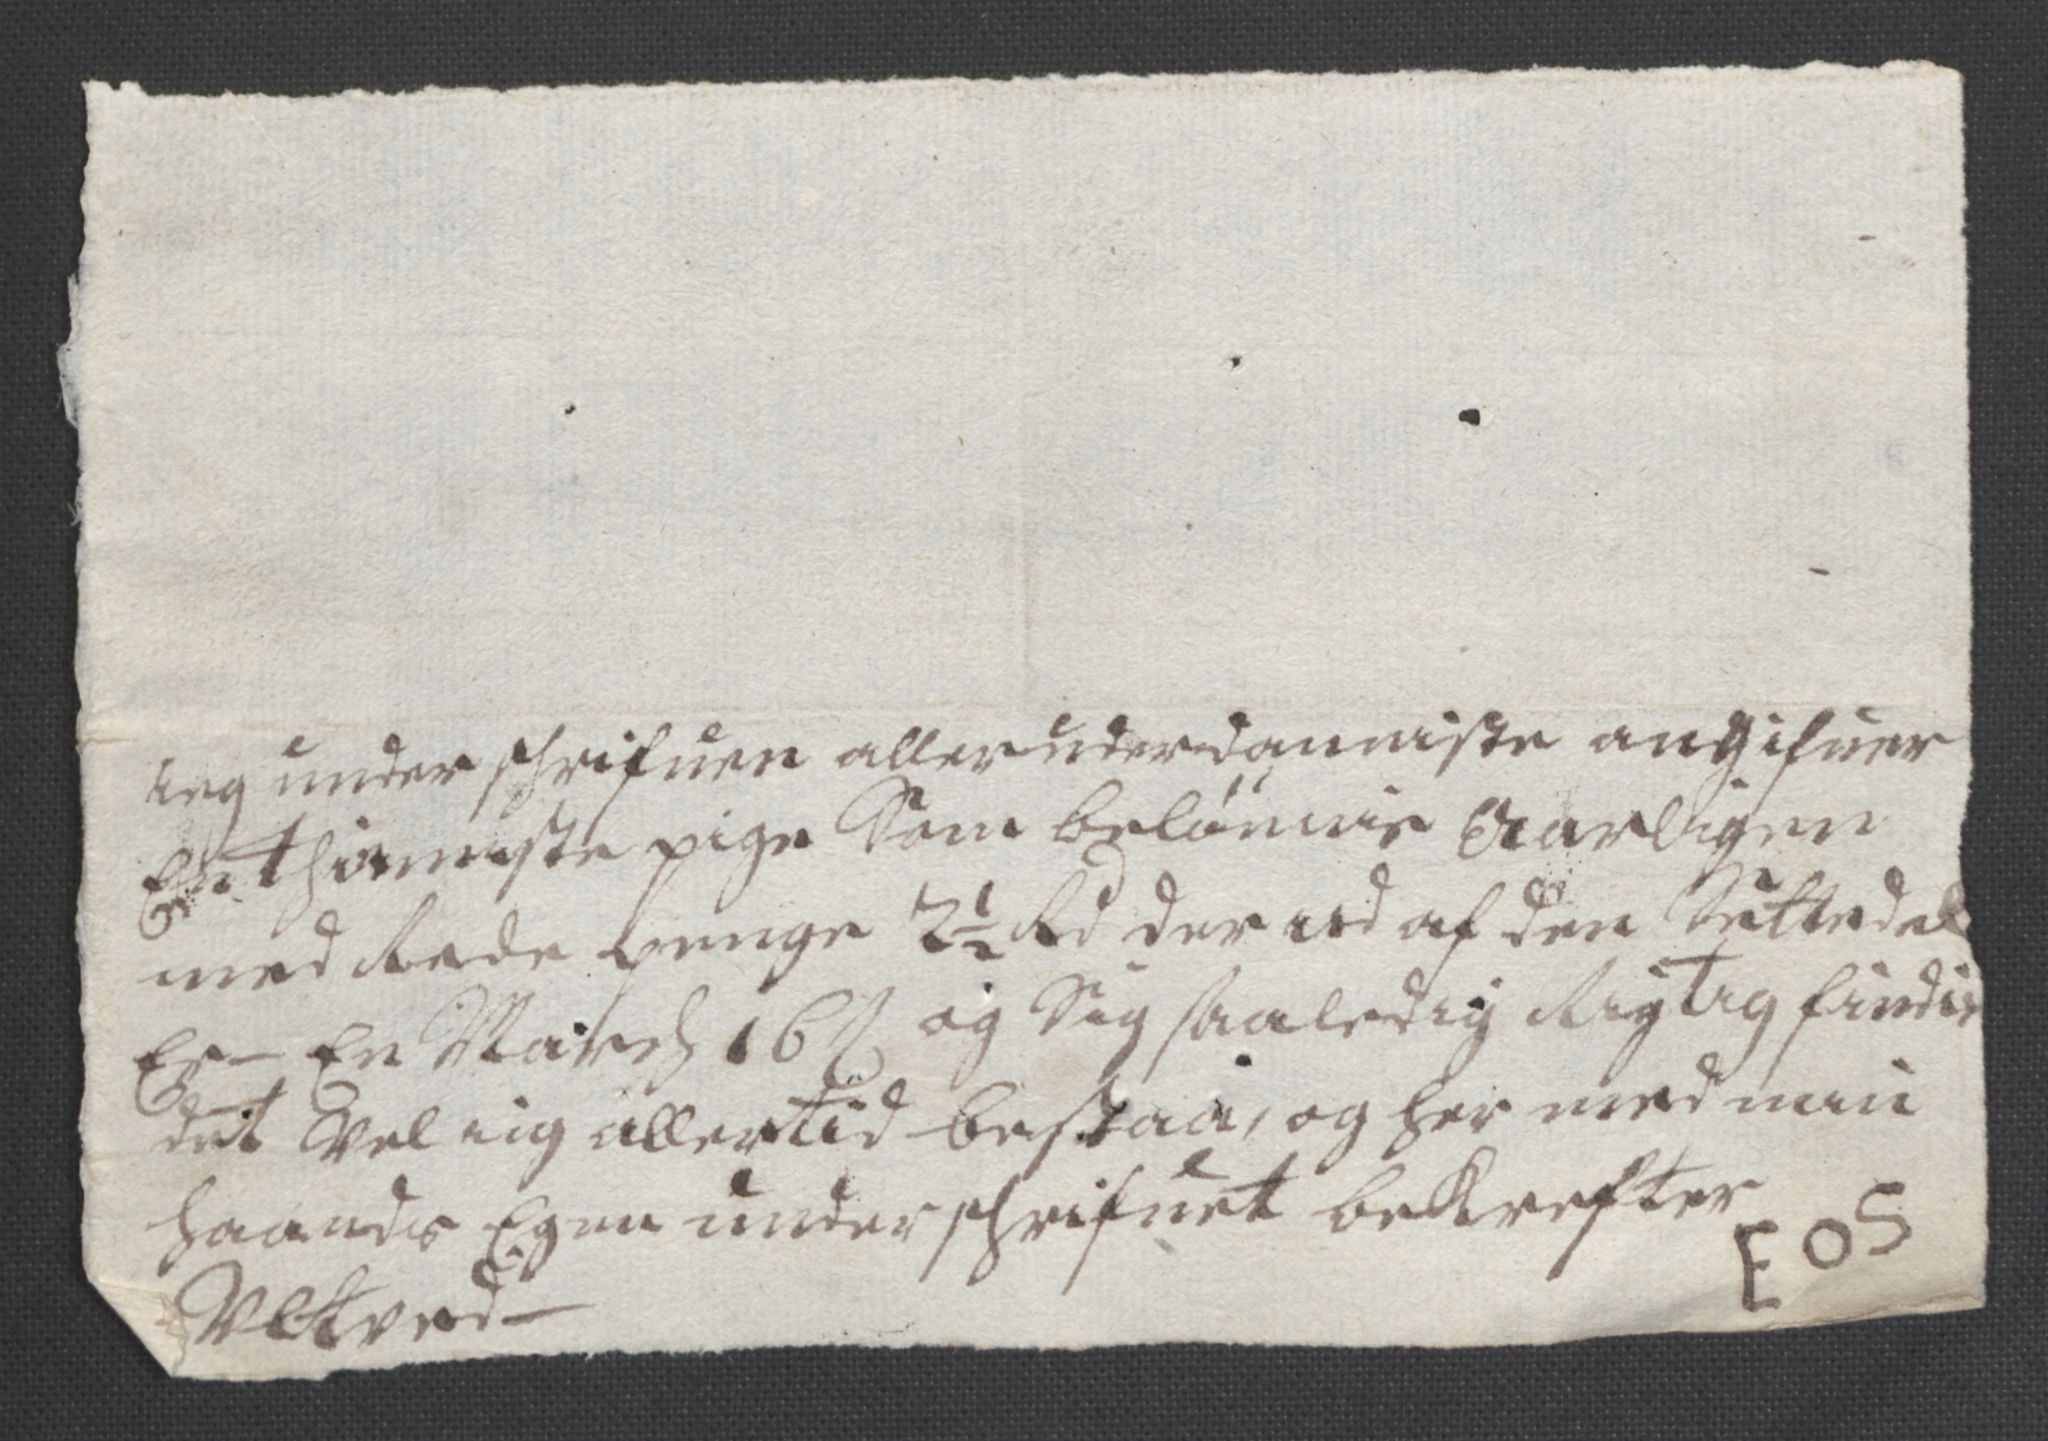 ieg under schrifuen allerunderdanniste angifuer
En thienniste pige Som belønnis Aarligen
med Rede penge 2½ Rd der ud af den Siettedel
Er - En March 16 ß og Sig saaledig Rigtig findis
det Vel iig allertid bestaa, og her med min
haands Egen underschrifuet bekrefter
Vestved -
EOS